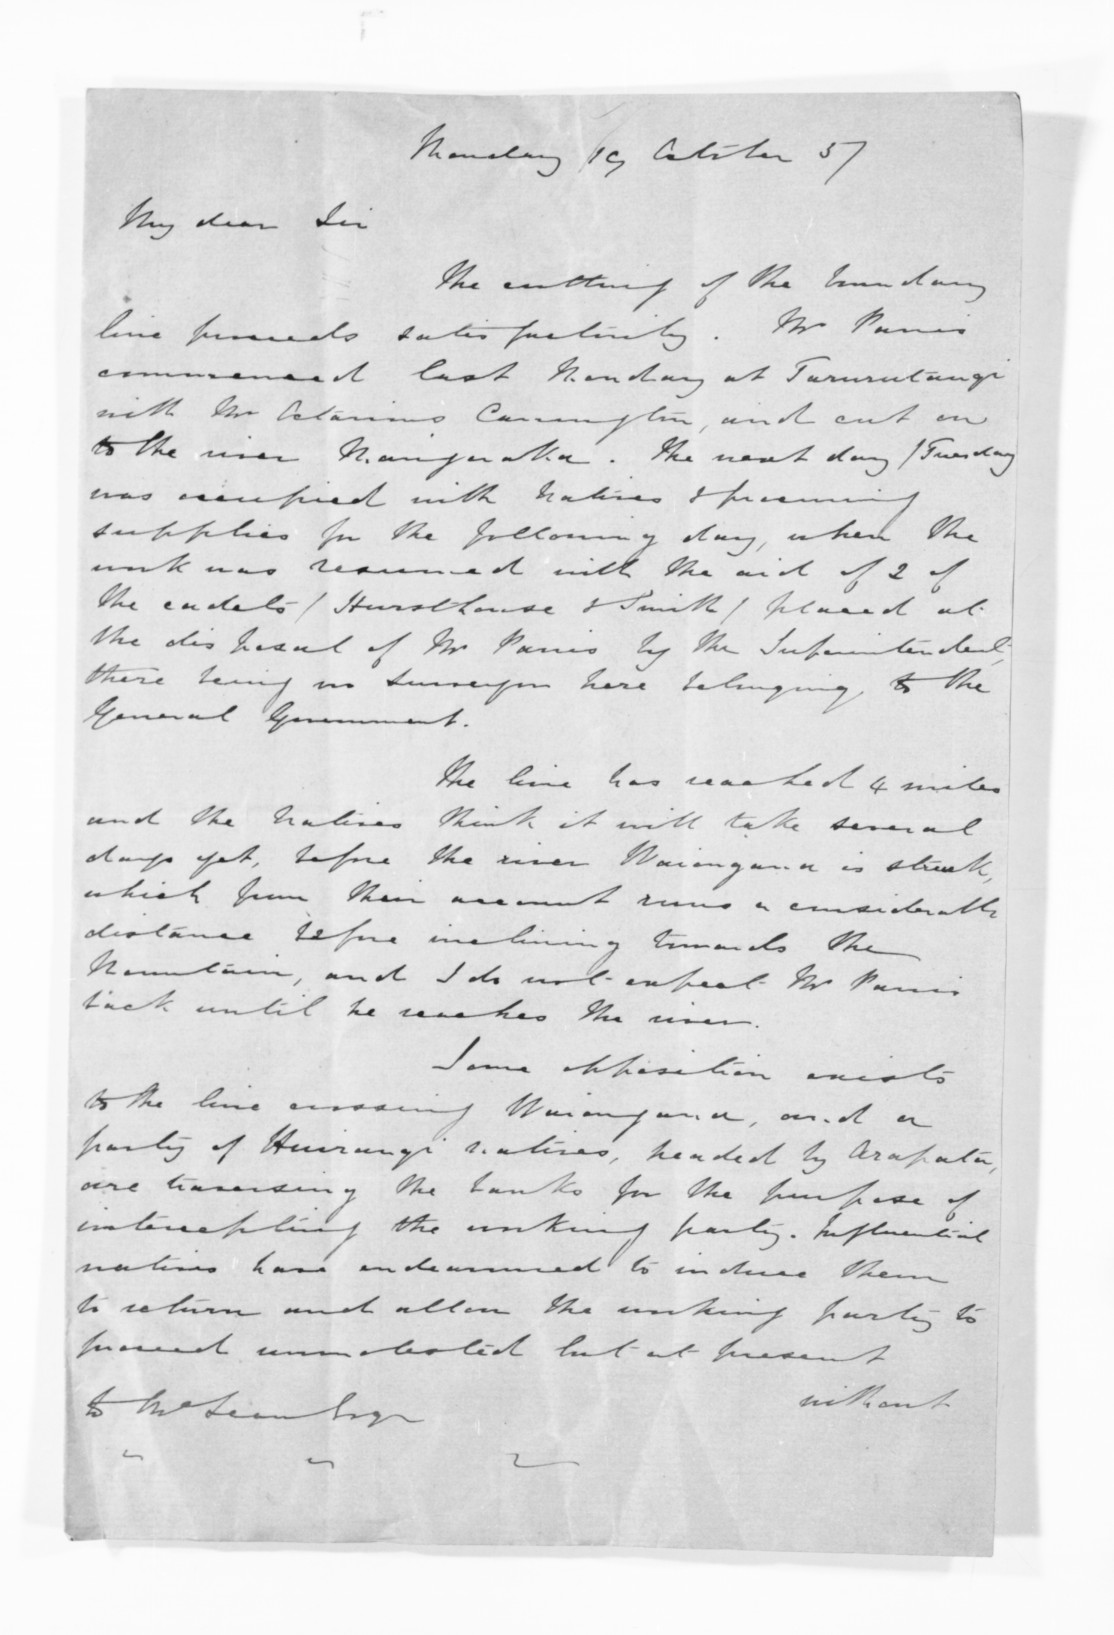 Monday 19 October 57
My dear Sir
The cutting of the boundary
line proceeds satisfactorily. Mr Parris
commenced last Monday at Tarurutangi
with Mr Octavius Carrington, and cut on
to the river Mangoraka. The next day (Tuesday
was occupied with Natives & procuring
supplies for the following day, when the
work was resumed with the aid of 2 of
the cadets (Hursthouse & Smith) placed at
the disposal of Mr Parris by the Superintendent,
there being no Surveyor here belonging to the
General Government.
The line has reached 4 miles
and the Natives think it will take several
days yet, before the river Waiongana is struck,
which from their account runs a considerable
distance before inclining towards the
Mountain, and I do not expect Mr Parris
back until he reaches the river.
Some opposition exists
to the line crossing Waiongana, and a
party of Huirangi natives, headed by Arapata,
are traversing the banks for the purpose of
intercepting the working party. Influential
natives have endeavoured to induce them
to return and allow the working party to
proceed unmolested but at present
without
to McLean Esqr